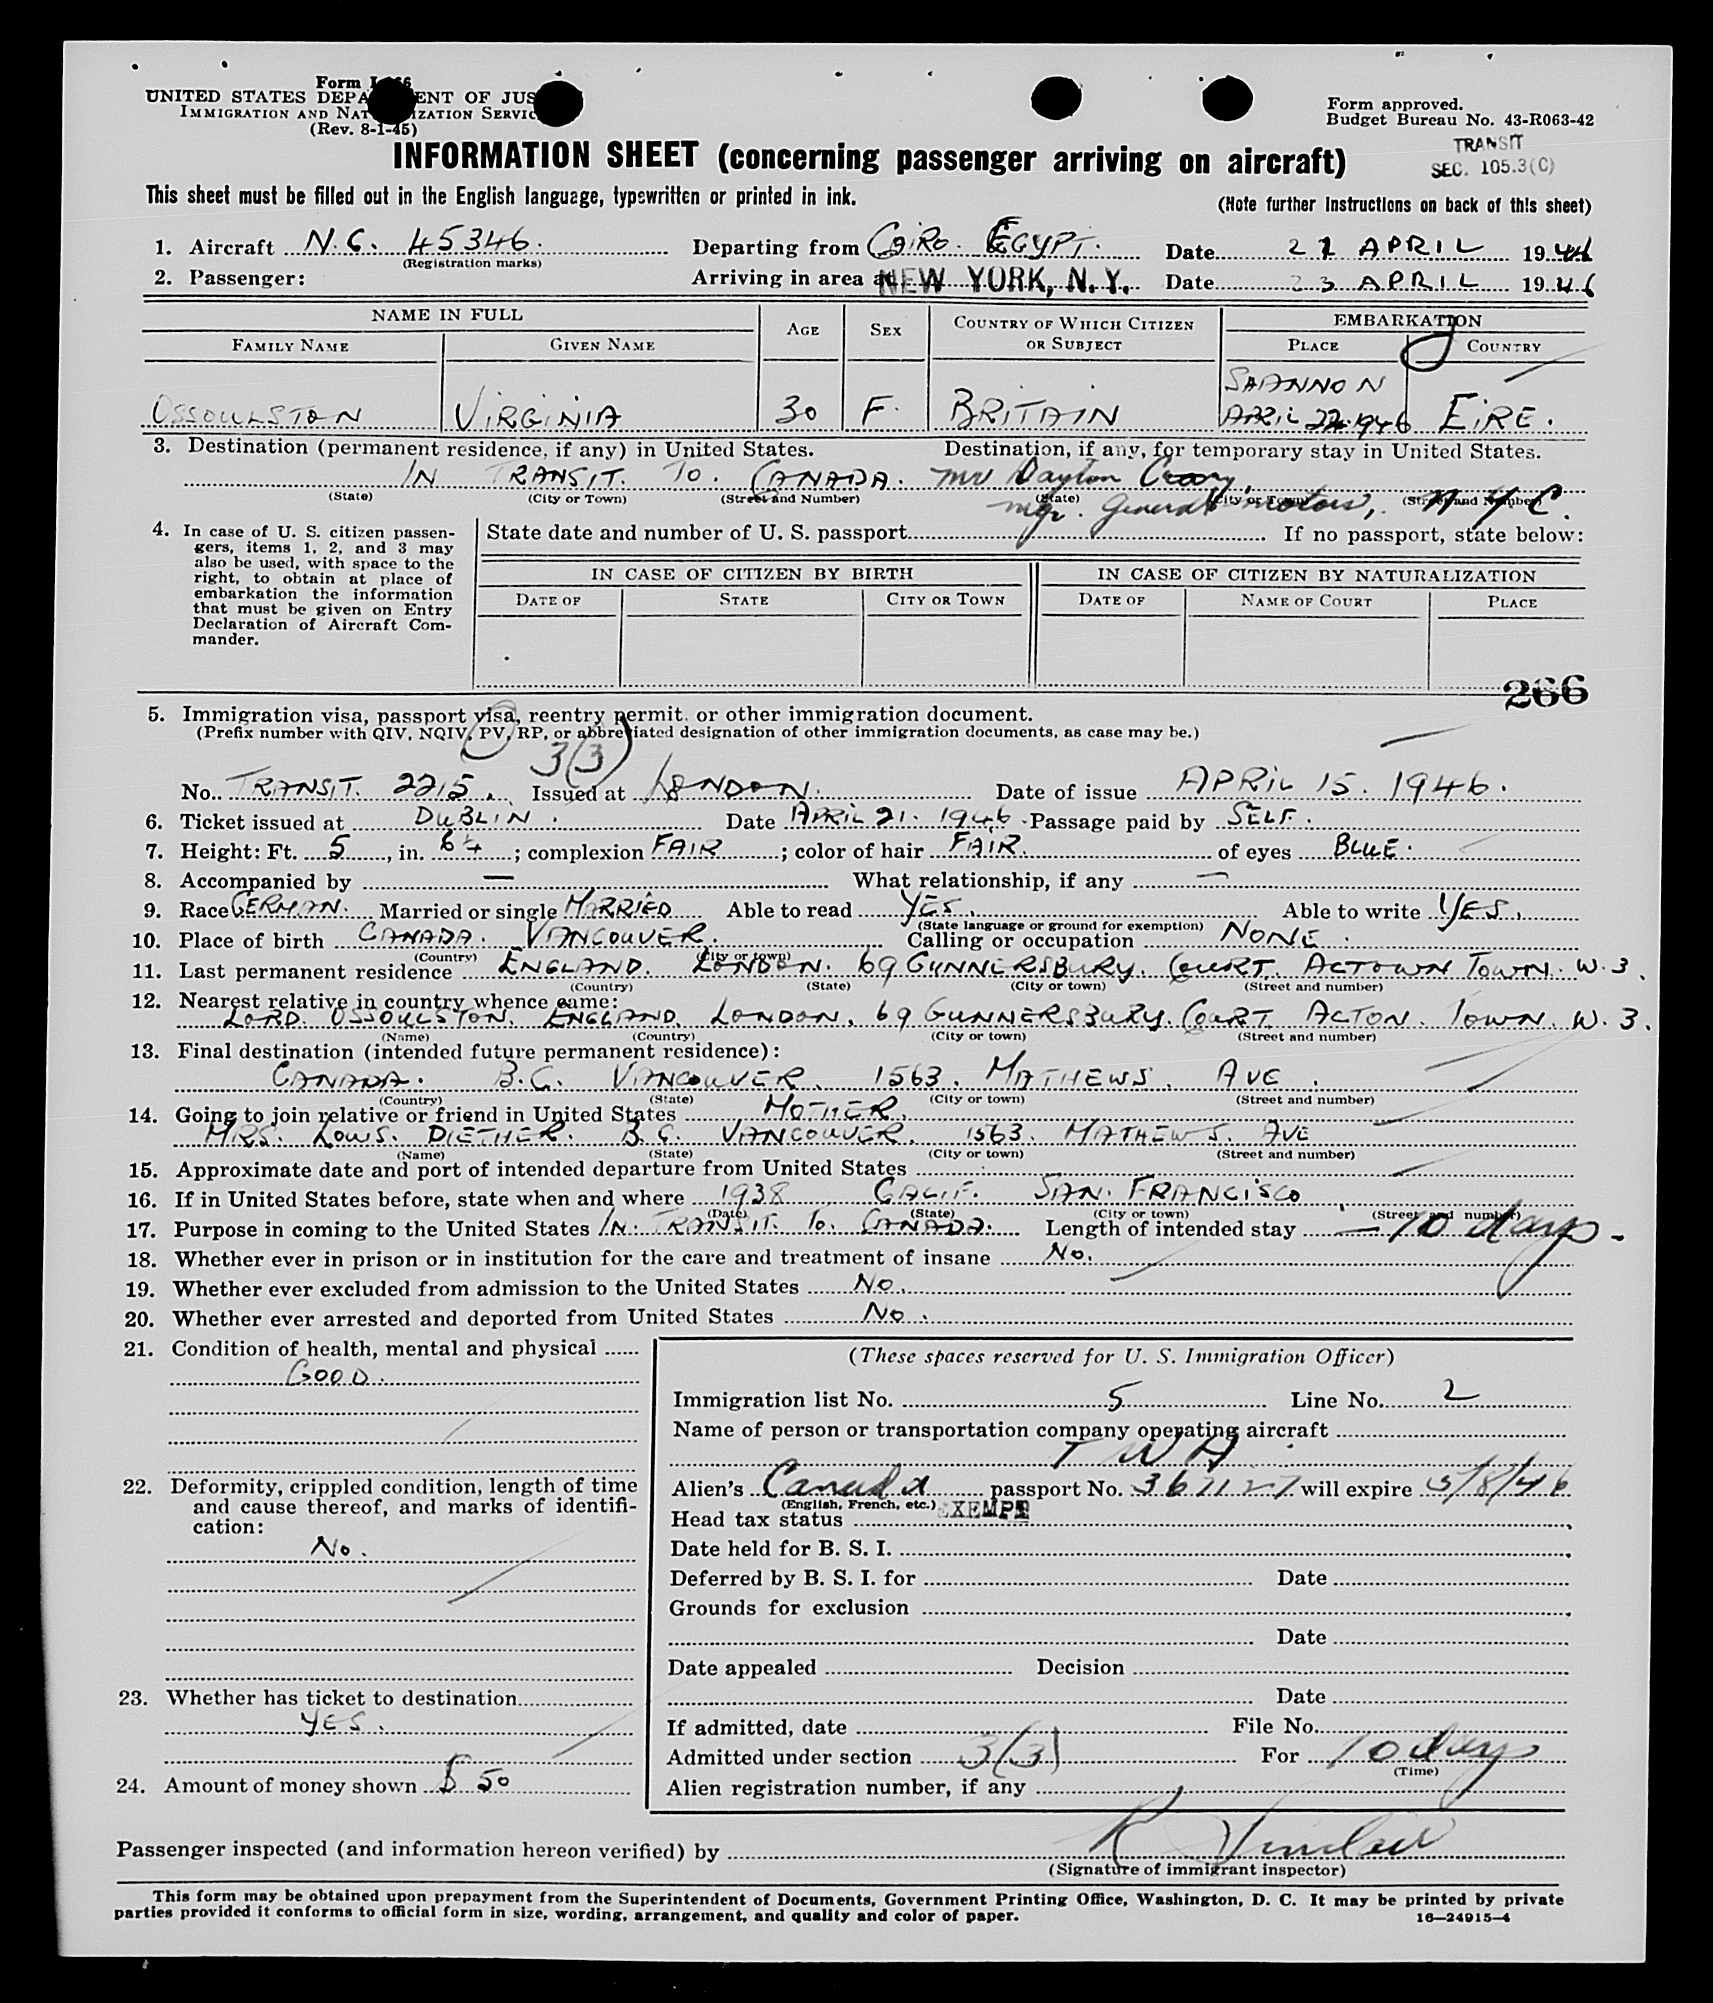 Form I-466
UNITED STATES DEPARTMENT OF JUSTICE
IMMIGRATION AND NATURALIZATION SERVICE
(Rev. 8-1-45)
Form approved.
Budget Bureau No. 43-R063-42
TRANSIT
SEC. 105.3(C)
INFORMATION SHEET (concerning passenger arriving on aircraft)
This sheet must be filled out in the English language, typewritten or printed in ink.
(Note further instructions on back of this sheet)
1. Aircraft N.C. 45346. Departing from CAIRO. EGYPT. Date 21 APRIL 1946
(Registration marks)
2. Passenger: Arriving in area at NEW YORK, N.Y. Date 23 APRIL 1946
NAME IN FULL AGE SEX COUNTRY OF WHICH CITIZEN OR SUBJECT EMBARKATION
FAMILY NAME GIVEN NAME PLACE COUNTRY
SHANNON
OSSOULSTON VIRGINIA 30 F. BRITAIN APRIL 22.1946 EIRE.
3. Destination (permanent residence, if any) in United States. Destination, if any, for temporary stay in United States.
IN TRANSIT. TO. CANADA. Mr Dayton
(State) (City or Town) (Street and Number) (State) (City or Town) (Street and Number)
mgr. General motors, N Y C.
4. In case of U. S. citizen passengers, items 1, 2, and 3 may also be used, with space to the right, to obtain at place of embarkation the information that must be given on Entry Declaration of Aircraft Commander.
State date and number of U. S. passport If no passport, state below:
IN CASE OF CITIZEN BY BIRTH IN CASE OF CITIZEN BY NATURALIZATION
DATE OF STATE CITY OR TOWN DATE OF NAME OF COURT PLACE
266
5. Immigration visa, passport visa, reentry permit, or other immigration document.
(Prefix number with QIV, NQIV, PV, RP, or abbreviated designation of other immigration documents, as case may be.)
3(3)
No. TRANSIT. 2215. Issued at LONDON. Date of issue APRIL 15. 1946.
6. Ticket issued at DUBLIN. Date APRIL 21. 1946. Passage paid by SELF.
7. Height: Ft. 5, in. 6¼; complexion FAIR; color of hair FAIR. of eyes BLUE.
8. Accompanied by — What relationship, if any —
9. Race GERMAN. Married or single MARRIED Able to read YES. Able to write YES.
(State language or ground for exemption)
10. Place of birth CANADA. VANCOUVER. Calling or occupation NONE.
(Country) (City or town)
11. Last permanent residence ENGLAND. LONDON. 69 GUNNERSBURY. COURT. ACTOWN TOWN. W.3.
(Country) (State) (City or town) (Street and number)
12. Nearest relative in country whence came:
LORD. OSSOULSTON. ENGLAND. LONDON. 69 GUNNERSBURY. COURT. ACTON. TOWN. W. 3.
(Name) (Country) (City or town) (Street and number)
13. Final destination (intended future permanent residence):
CANADA. B.C. VANCOUVER. 1563. MATHEWS. AVE.
(Country) (State) (City or town) (Street and number)
14. Going to join relative or friend in United States MOTHER.
MRS. LOWS. DIETHER. B.C. VANCOUVER. 1563. MATHEWS. AVE
(Name) (State) (City or town) (Street and number)
15. Approximate date and port of intended departure from United States
16. If in United States before, state when and where 1938 CALIF. SAN. FRANCISCO
(Date) (State) (City or town) (Street and number)
17. Purpose in coming to the United States IN. TRANSIT. TO. CANADA. Length of intended stay — 10 days.
18. Whether ever in prison or in institution for the care and treatment of insane No.
19. Whether ever excluded from admission to the United States No.
20. Whether ever arrested and deported from United States No.
21. Condition of health, mental and physical
GOOD.
22. Deformity, crippled condition, length of time and cause thereof, and marks of identification:
No.
23. Whether has ticket to destination
YES.
24. Amount of money shown $ 50
(These spaces reserved for U. S. Immigration Officer)
Immigration list No. 5 Line No. 2
Name of person or transportation company operating aircraft
T W A
Alien's Canada passport No. 367127 will expire 5/8/46
(English, French, etc.)
Head tax status EXEMPT
Date held for B. S. I.
Deferred by B. S. I. for Date
Grounds for exclusion
Date
Date appealed Decision
Date
If admitted, date File No.
Admitted under section 3(3) For 10 days
(Time)
Alien registration number, if any
Passenger inspected (and information hereon verified) by R Sinclair
(Signature of immigrant inspector)
This form may be obtained upon prepayment from the Superintendent of Documents, Government Printing Office, Washington, D. C. It may be printed by private
parties provided it conforms to official form in size, wording, arrangement, and quality and color of paper.
16—24915-4